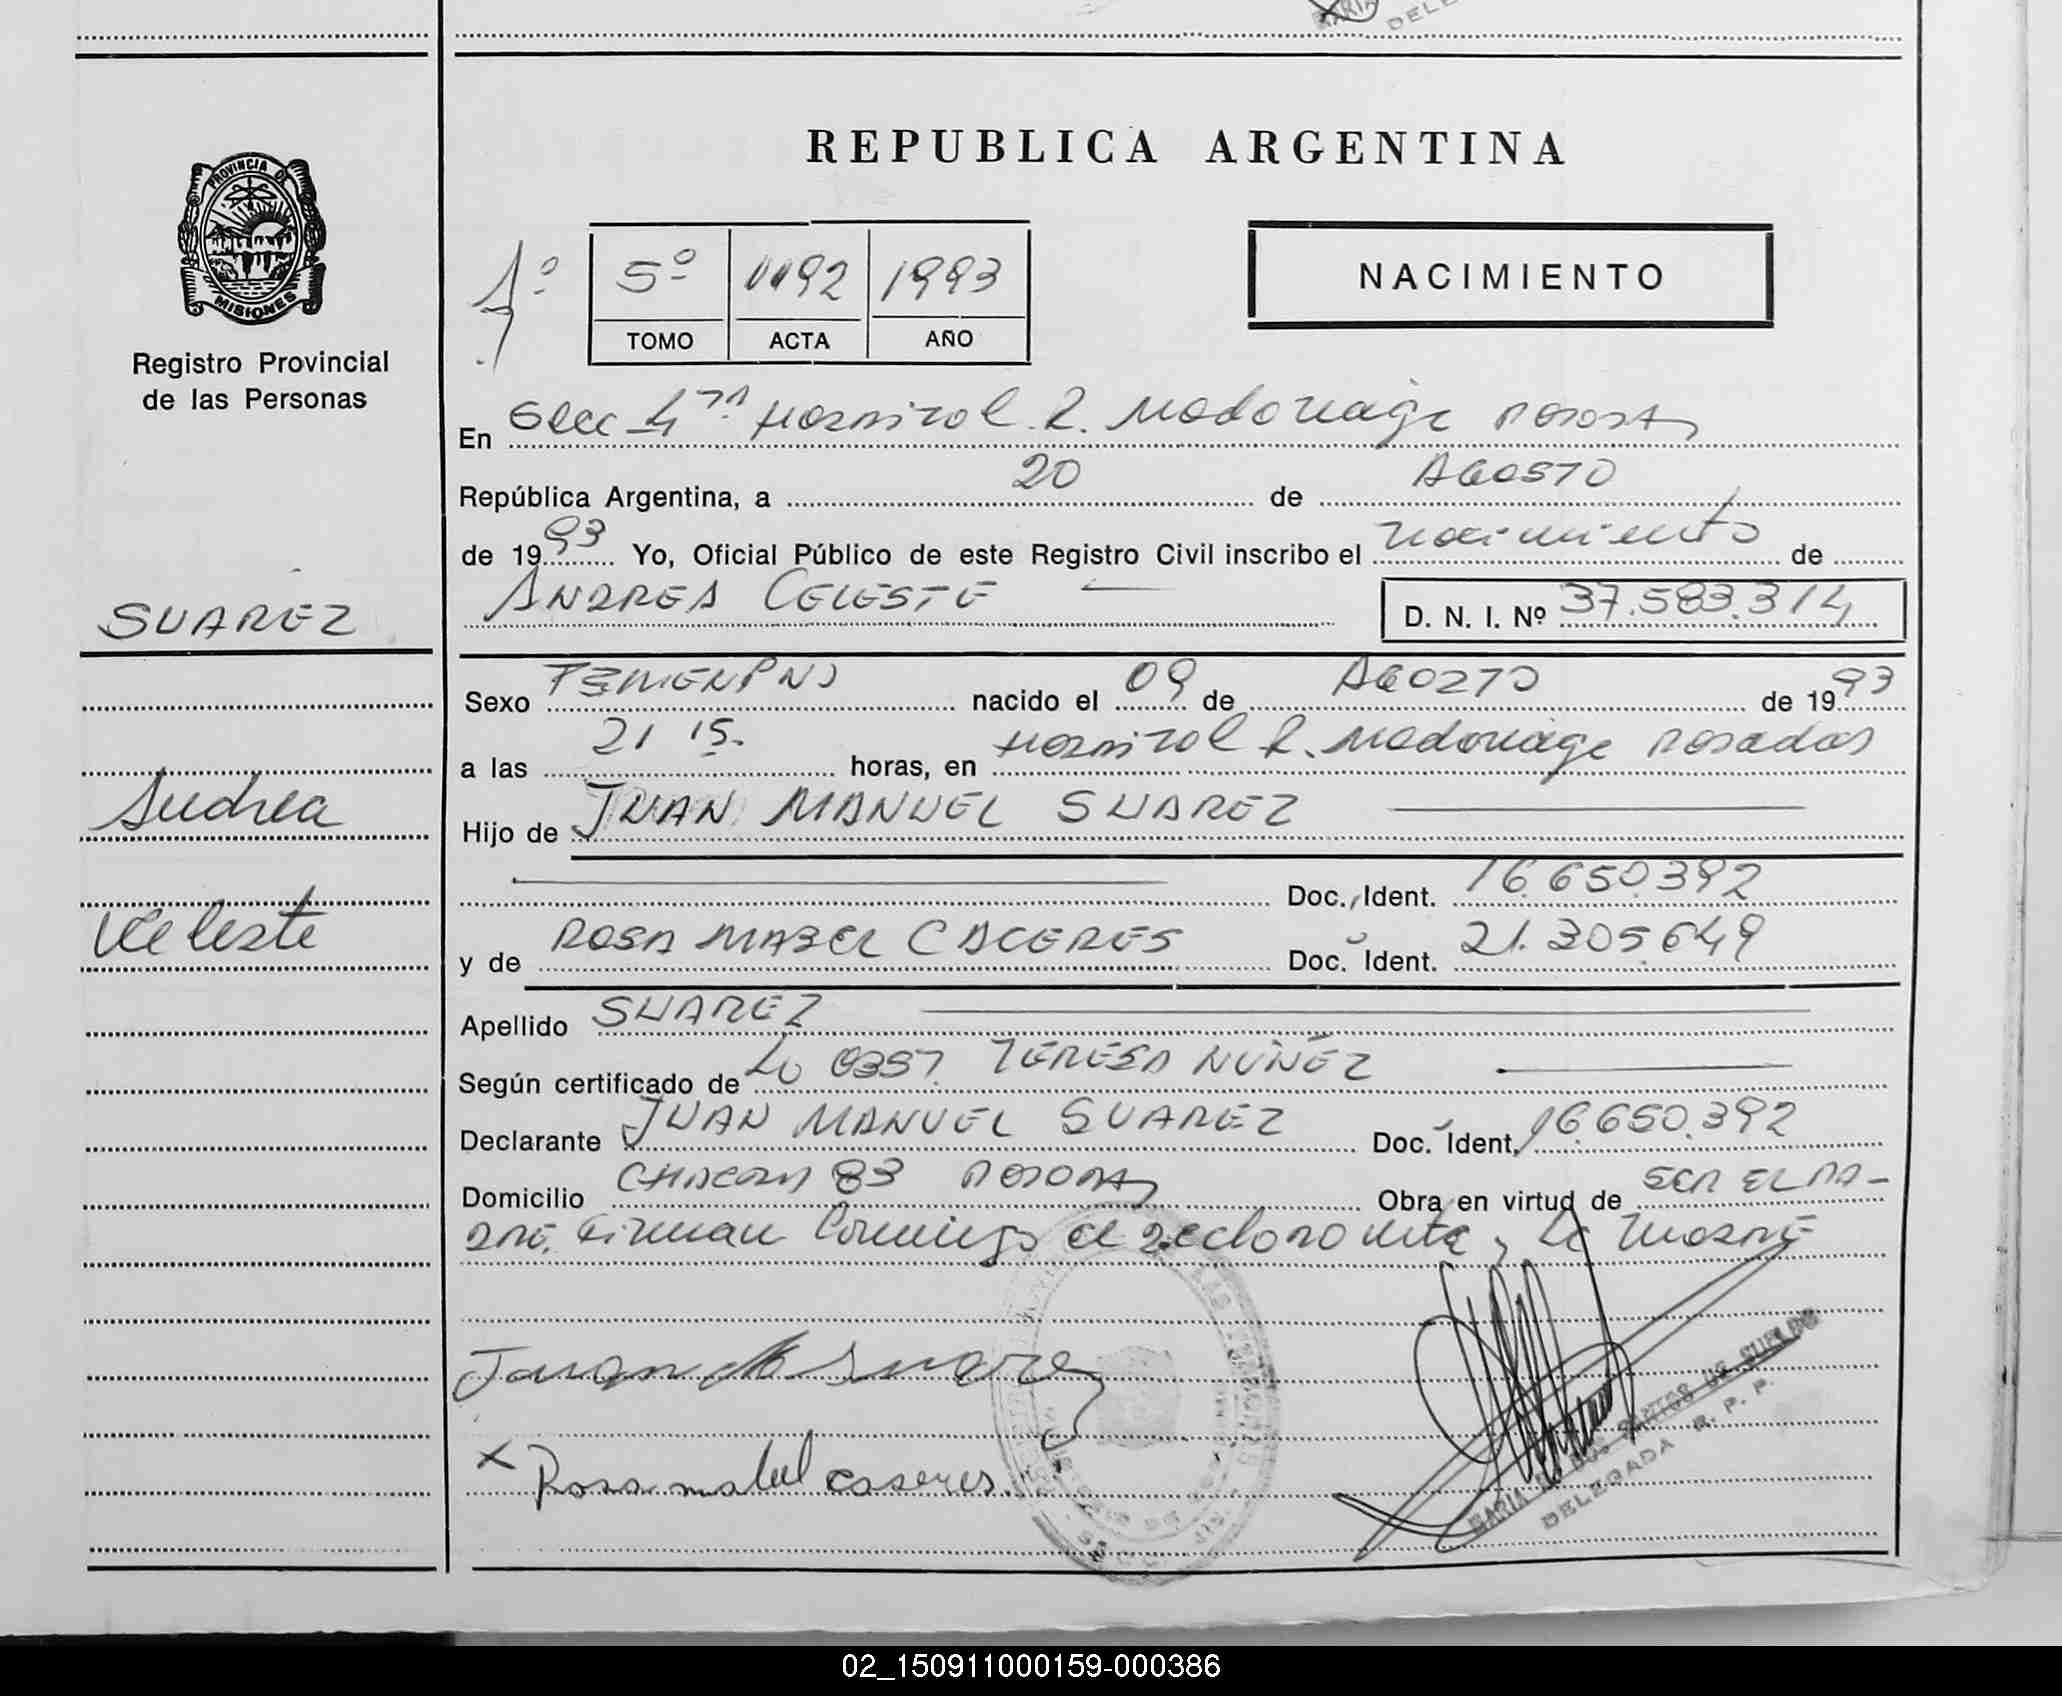 REPUBLICA ARGENTINA
PROVINCIA DE
MISIONES
Registro Provincial
de las Personas
1º
5º 1192 1993
TOMO ACTA AÑO
NACIMIENTO
En Secc 4ta Hospital R. Madariaga Posadas
República Argentina, a 20 de AGOSTO
de 1993 Yo, Oficial Público de este Registro Civil inscribo el nacimiento de
ANDREA CELESTE
D. N. I. Nº 37.583.314
SUAREZ
Andrea
Celeste
Sexo FEMENINO nacido el 09 de AGOSTO de 1993
a las 21 15. horas, en Hospital R. Madariaga Posadas
Hijo de JUAN MANUEL SUAREZ
Doc. Ident. 16.650.392
y de ROSA MABEL CACERES Doc. Ident. 21.305.649
Apellido SUAREZ
Según certificado de TERESA NUÑEZ
Declarante JUAN MANUEL SUAREZ Doc. Ident. 16.650.392
Domicilio 83 POSADAS Obra en virtud de SER EL PA-
DRE. Firman Conmigo el declarante y la madre
Juan M Suarez
x Rosa mabel caseres.
MARIA SANTOS DE SUELDO
DELEGADA R. P. P.
02_150911000159-000386